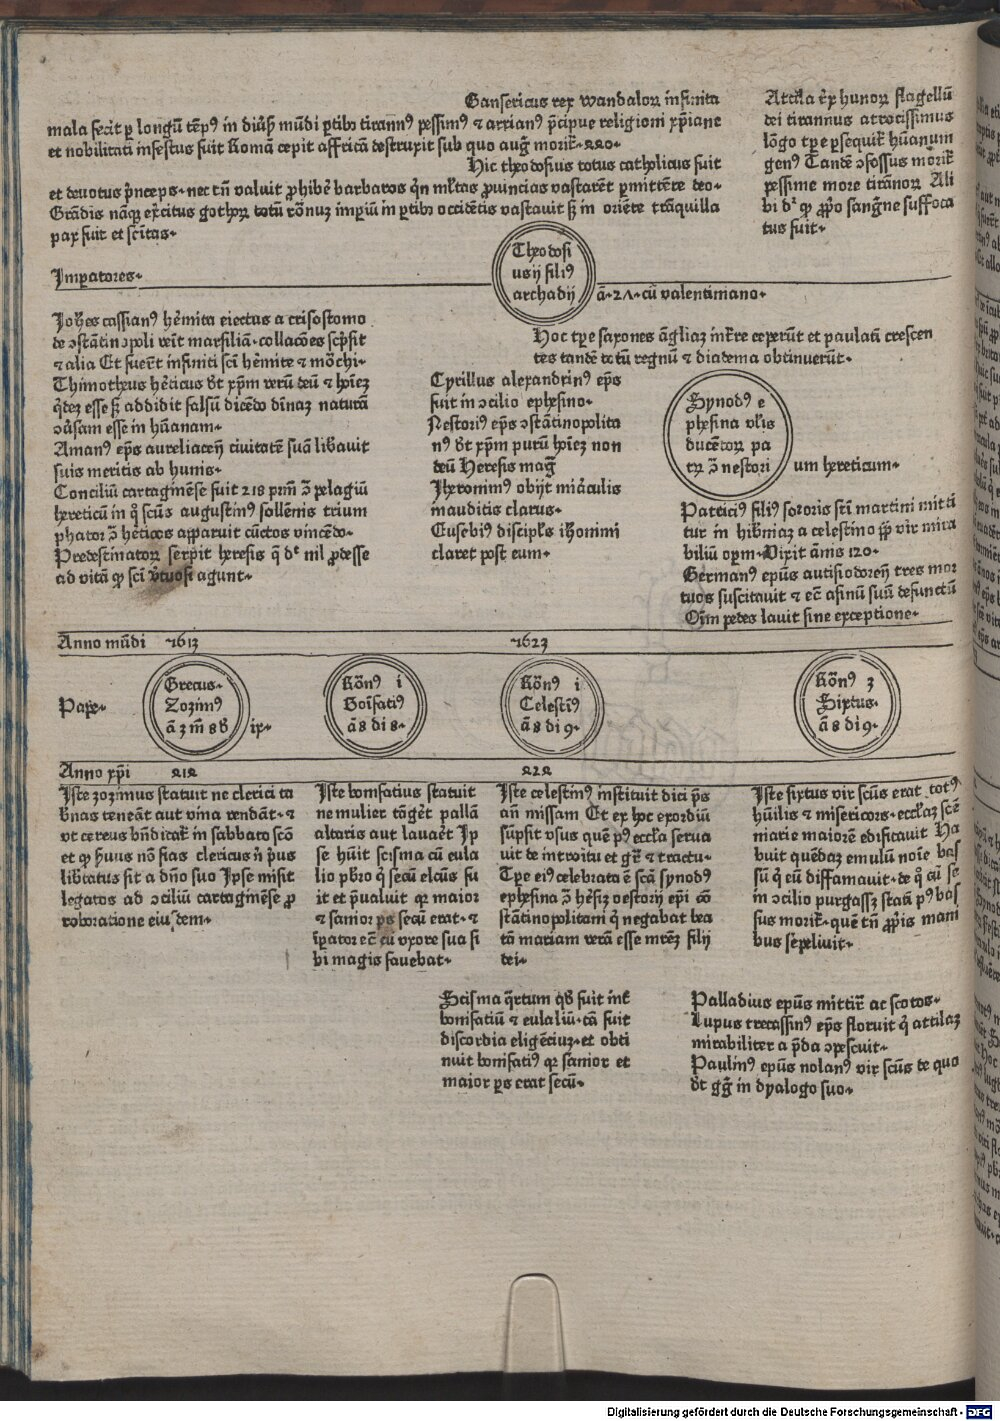 Gansericus rex wandaloꝝ infinita
mala fecit ꝑ longū tēpꝰ in diūſ mūdi ꝑtibꝰ tirannꝰ peſſimꝰ ⁊ arrianꝰ p̄cipue religioni xp̄iane
et nobilitati infeſtus fuit Romā cepit affricā deſtruxit ſub quo augꝰ morit̄·
Hic theodoſius totus catholicus fuit
et deuotus p̄nceps·nec tn̄ valuit ꝓhibē barbaros qn̄ ml̄tas ꝓuincias vaſtarēt ꝑmittēte deo·
Grādis nāqꝫ exͥcitus gothoꝝ totū rōnuꝫ imꝑiū in ꝑtibꝰ occidētis vaſtauit ſꝫ in oriēte trāquilla
pax fuit et ſcītas·
Attila rex hunoꝝ flagellū
dei tirannus atrociſſimus
lōgo tꝑe ꝑſequit̄ hūanum
genꝰ Tandē ꝯfoſſus morit̄
peſſime more tirānoꝝ Ali
bi dͬ qꝫ ꝓpͦo ſangͥne ſuffoca
tus fuit·
Theodoſi
usij filiꝰ
archadij
Imꝑatores·
ā·2Λ·cū valentimano·
Joh̄es caſſianꝰ h̄emita eiectus a criſoſtomo
de ꝯſtātinopoli veīt marſiliā·collacōes ſcͥpſit
⁊ alia Et fuer̄t infiniti ſcī h̄emite ⁊ mōchi·
Thimotheus h̄eticus dͭ xp̄m verū deū ⁊ hoīeꝫ
qͥdeꝫ eſſe ſꝫ addidit falſū dicēdo diīnaꝫ naturā
ꝯuͥſam eſſe in hūanam·
Amanꝰ ep̄s aureliaceñ ciuitatē ſuā lib̄auit
ſuis meritis ab hunis·
Conciliū cartaginēſe fuit 218 pr̄m ꝯͣ pelagiū
hereticū in qͦ ſcūs auguſtinꝰ ſollēnis trium
phator ꝯͣ h̄eticos apparuit cūctos vincēdo·
Predeſtinatoꝝ ſerpit hereſis q̄ dͭ nil ꝓdeſſe
ad vitā qꝫ ſcī v̄tuoſi agunt·
Hoc tꝑe ſaxones āgliaꝫ int̄re ceper̄ūt et paulati creſcen
tes tandē totū regnū ⁊ diadema obtinuer̄ūt·
Cyrillus alexandrinꝰ ep̄s
fuit in ꝯcilio epheſino·
Neſtoriꝰ ep̄s ꝯſtātinopolita
nꝰ dͭ xp̄m purū hoīeꝫ non
deū Hereſis magͣ
Iheronimꝰ obijt miͣculis
inauditis clarus·
Euſebiꝰ diſcipl̄s ih̄onimi
claret poſt eum·
Synodꝰ e
pheſina vl̄is
ducētoꝝ pa
tꝝ ꝯͣ neſtori
um hereticum·
Patriciꝰ filiꝰ ſororis ſcī martini mittī
tur in hib̄niaꝫ a celeſtino pp̄ vir mira
biliū oꝑm·Vixit ānis 120·
Germanꝰ ep̄us autiſiodoreñ tres mor
tuos ſuſcitauit ⁊ ec̄ aſinū ſuū defunctū
Oīm pedes lauit ſine exceptione·
Anno mūdi 𐌡613 𐌡623
Pape·
Grecus·
Zozimꝰ
ā 3 m̄ 8 dͭ
ix·
Rōnꝰ i
Boīfatiꝰ
ā 8 di 8·
Rōnꝰ i
Celeſtīꝰ
ā 8 di 9·
Rōnꝰ 3
Sixtus·
ā 8 di 9·
Anno xp̄i ꝝ1ꝝ ꝝ2ꝝ
Iſte zozimus ſtatuit ne clerici ta
b̄nas teneāt aut vina vendāt·⁊
vt cereus bn̄dicat̄ in ſabbato ſcō
et qꝫ ẜuus nō fias clericus ñ pͥus
lib̄tatus ſit a dn̄o ſuo Ipſe miſit
legatos ad ꝯciliū cartaginēſe ꝓ
roboratione eiuſdem·
Iſte bonifatius ſtatuit
ne mulier tōgēt pallā
altaris aut lauaēt Ip
ſe hūit ſciſma cū eula
lio pb̄ro qͥ ſecū elcūs fu
it et p̄ualuit qꝛ maior
⁊ ſanior pͣs ſecū erat·⁊
īpator ec̄ cū vxore ſua ſi
bi magis fauebat·
Iſte celeſtinꝰ inſtituit dici pͣs
an̄ miſſam Et ex hoc exordiū
ſūpſit vſus quē pꝰ eccl̄a ſerua
uit de introitu et gr̄ ⁊ tractu·
Tꝑe eiꝰ celebrata ē ſcā ſynodꝰ
epheſina ꝯͣ h̄eſiꝫ neſtorij ep̄i cō
ſtātinopolitani qͥ negabat bea
tā mariam verā eſſe mr̄eꝫ filij
dei·
Iſte ſixtus vir ſcūs erat totꝰ
hūilis ⁊ miſericors·eccl̄aꝫ ſcē
marie maiorē edificauit Ha
buit quēdaꝫ emulū noīe baſ
ſū qͥ eū diffamauit·de qͦ cū ſe
in ꝯcilio purgaſſꝫ ſtatī pꝰ baſ
ſus morit̄·quē tn̄ ꝓpͥis mani
bus ſepeliuit·
Sciſma qͣrtum qd̄ fuit int̄
bonifatiū ⁊ eulaliū·tā fuit
diſcordia eligētiuꝫ·et obti
nuit bonifatiꝰ qꝛ ſanior et
maior pͣs erat ſecū·
Palladius ep̄us mittit̄ ac ſcotos·
Lupus trecaſſinꝰ ep̄s floruit qͥ attilaꝫ
mirabiliter a p̄da ꝯpeſcuit·
Paulinꝰ ep̄us nolanꝰ vir ſcūs de quo
dͭ gg̃ in dyalogo ſuo·
Digitalisierung gefördert durch die Deutsche Forschungsgemeinschaft - DFG